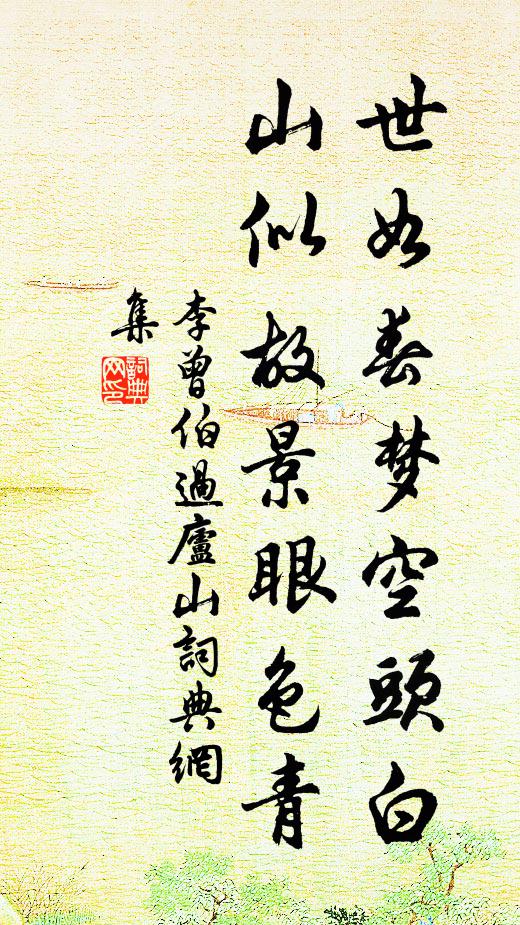 世如春梦空頭白
山似故景眼色青
李曾伯過廬山詞典網
集
詞典
网印